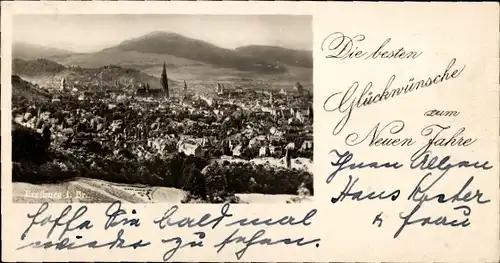 Die besten
Glückwünsche
zum
Neuen Jahre
Ihnen Allen
Hans Kester
u Frau
Freiburg i. Br.
hoffe Sie bald mal
wieder zu sehen